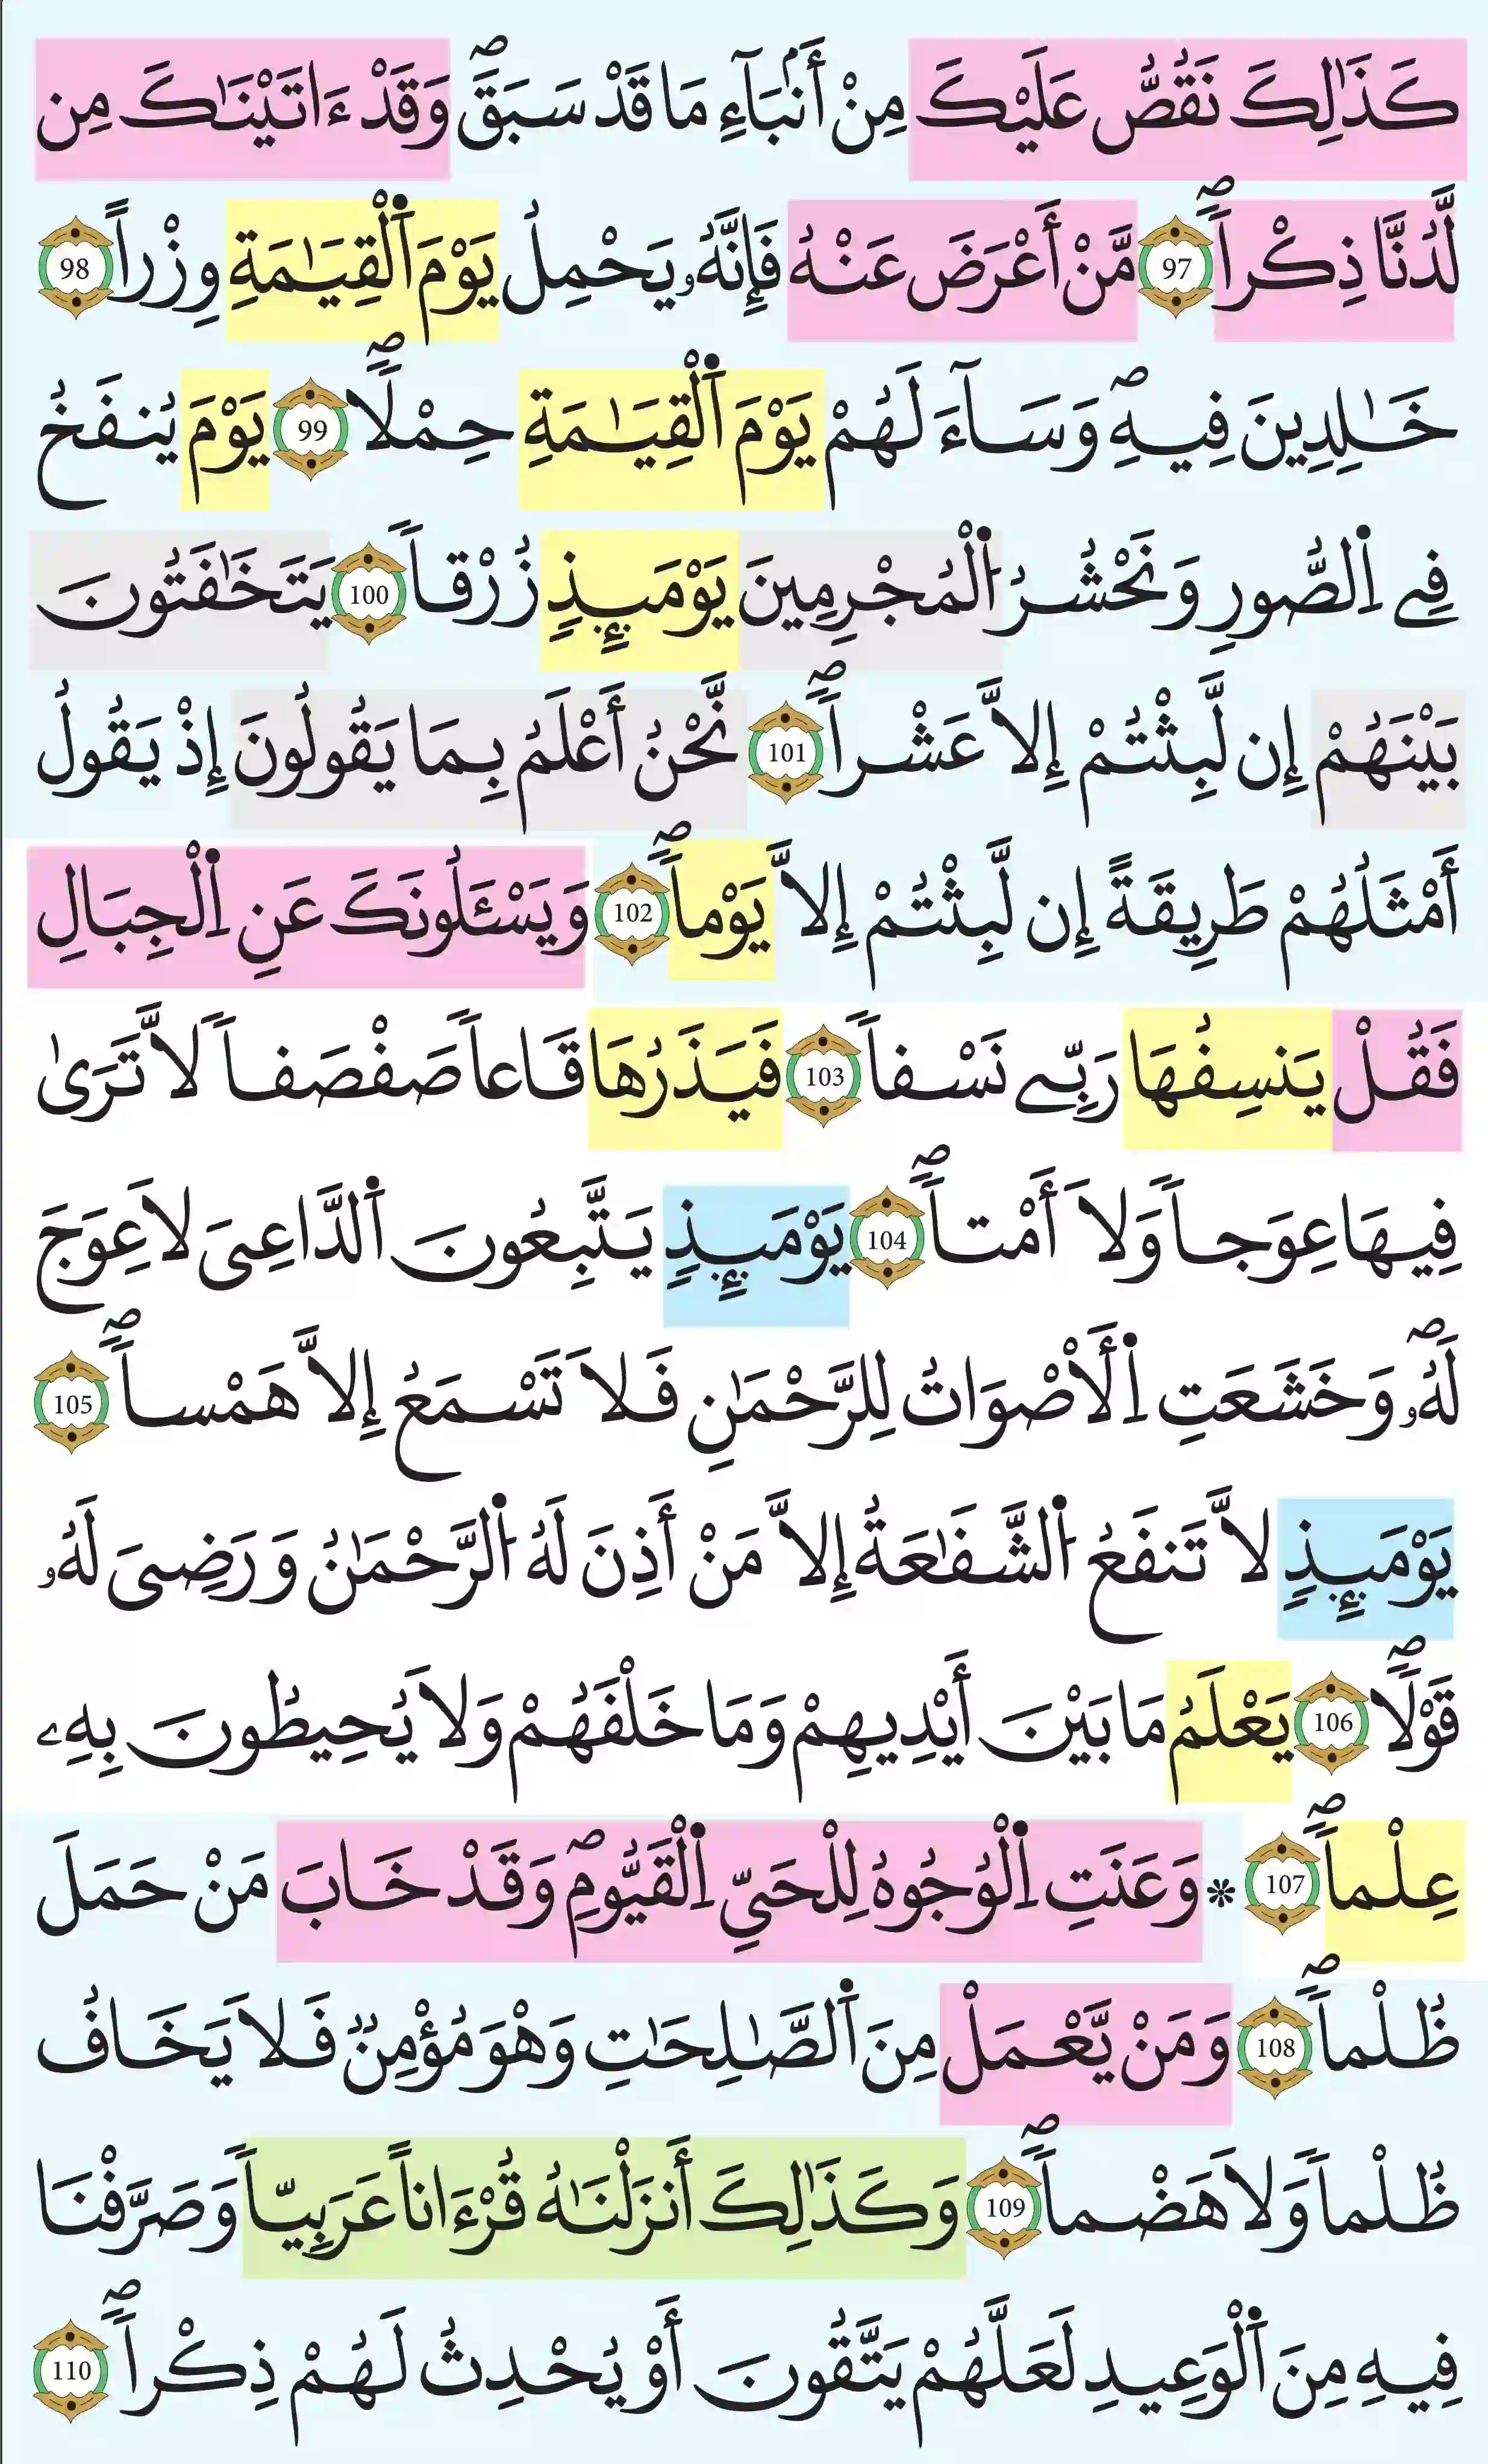 كَذَٰلِكَ نَقُصُّ عَلَيْكَ مِنْ أَنۢبَآءِ مَا قَدْ سَبَقَۖ وَقَدْ ءَاتَيْنَٰكَ مِن
لَّدُنَّا ذِكْراًۖ 97 مَّنْ أَعْرَضَ عَنْهُ فَإِنَّهُۥ يَحْمِلُ يَوْمَ اَ۬لْقِيَٰمَةِ وِزْراً 98
خَٰلِدِينَ فِيهِۖ وَسَآءَ لَهُمْ يَوْمَ اَ۬لْقِيَٰمَةِ حِمْلاًۖ 99 يَوْمَ يُنفَخُ
فِے اِ۬لصُّورِ وَنَحْشُرُ اُ۬لْمُجْرِمِينَ يَوْمَئِذٍ زُرْقاً 100 يَتَخَٰفَتُونَ
بَيْنَهُمْ إِن لَّبِثْتُمْ إِلَّا عَشْراًۖ 101 نَّحْنُ أَعْلَمُ بِمَا يَقُولُونَ إِذْ يَقُولُ
أَمْثَلُهُمْ طَرِيقَةً إِن لَّبِثْتُمْ إِلَّا يَوْماًۖ 102 وَيَسْـَٔلُونَكَ عَنِ اِ۬لْجِبَالِ
فَقُلْ يَنسِفُهَا رَبِّے نَسْفاً 103 فَيَذَرُهَا قَاعاً صَفْصَفاً لَّا تَرَىٰ
فِيهَا عِوَجاً وَلَا أَمْتاًۖ 104 يَوْمَئِذٍ يَتَّبِعُونَ اَ۬لدَّاعِىَ لَا عِوَجَ
لَهُۥۖ وَخَشَعَتِ اِ۬لْأَصْوَاتُ لِلرَّحْمَٰنِ فَلَا تَسْمَعُ إِلَّا هَمْساًۖ 105
يَوْمَئِذٍ لَّا تَنفَعُ اُ۬لشَّفَٰعَةُ إِلَّا مَنْ أَذِنَ لَهُ اُ۬لرَّحْمَٰنُ وَرَضِىَ لَهُۥ
قَوْلاًۖ 106 يَعْلَمُ مَا بَيْنَ أَيْدِيهِمْ وَمَا خَلْفَهُمْ وَلَا يُحِيطُونَ بِهِۦ
عِلْماًۖ 107 * وَعَنَتِ اِ۬لْوُجُوهُ لِلْحَىِّ اِ۬لْقَيُّومِۖ وَقَدْ خَابَ مَنْ حَمَلَ
ظُلْماًۖ 108 وَمَنْ يَّعْمَلْ مِنَ اَ۬لصَّٰلِحَٰتِ وَهْوَ مُؤْمِنٌ فَلَا يَخَافُ
ظُلْماً وَلَا هَضْماًۖ 109 وَكَذَٰلِكَ أَنزَلْنَٰهُ قُرْءَاناً عَرَبِيّاً وَصَرَّفْنَا
فِيهِ مِنَ اَ۬لْوَعِيدِ لَعَلَّهُمْ يَتَّقُونَ أَوْ يُحْدِثُ لَهُمْ ذِكْراًۖ 110